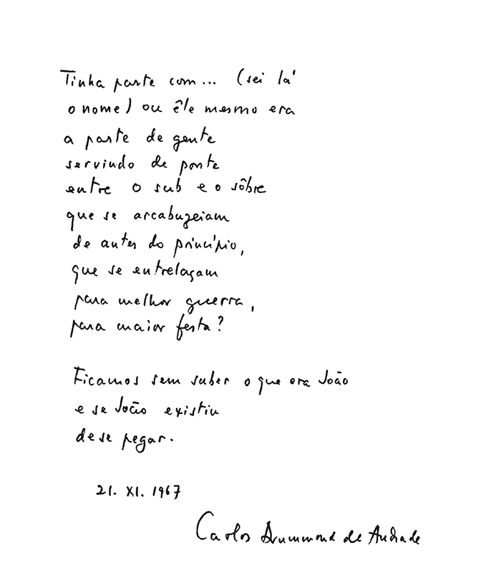 Tinha parte com... (sei lá
o nome) ou êle mesmo era
a parte de gente
servindo de ponte
entre o sub e o sôbre
que se arcabuzeiam
de antes do princípio,
que se entrelaçam
para melhor guerra,
para maior festa?
Ficamos sem saber o que era João
e se João existiu
de se pegar.
21. XI. 1967
Carlos Drummond de Andrade